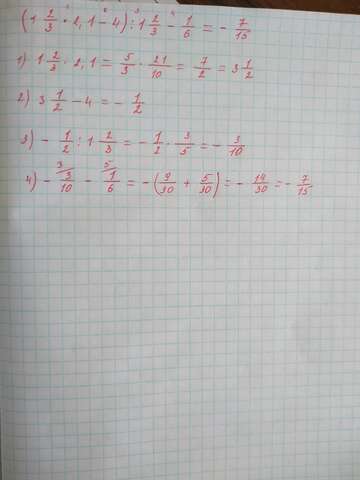 (1 2/3 · 2,1 - 4) : 1 2/3 - 1/6 = - 7/15
1) 1 2/3 · 2,1 = 5/3 · 21/10 = 7/2 = 3 1/2
2) 3 1/2 - 4 = - 1/2
3) - 1/2 : 1 2/3 = - 1/2 · 3/5 = - 3/10
4) - 3/10 - 1/6 = - (9/30 + 5/30) = - 14/30 = - 7/15